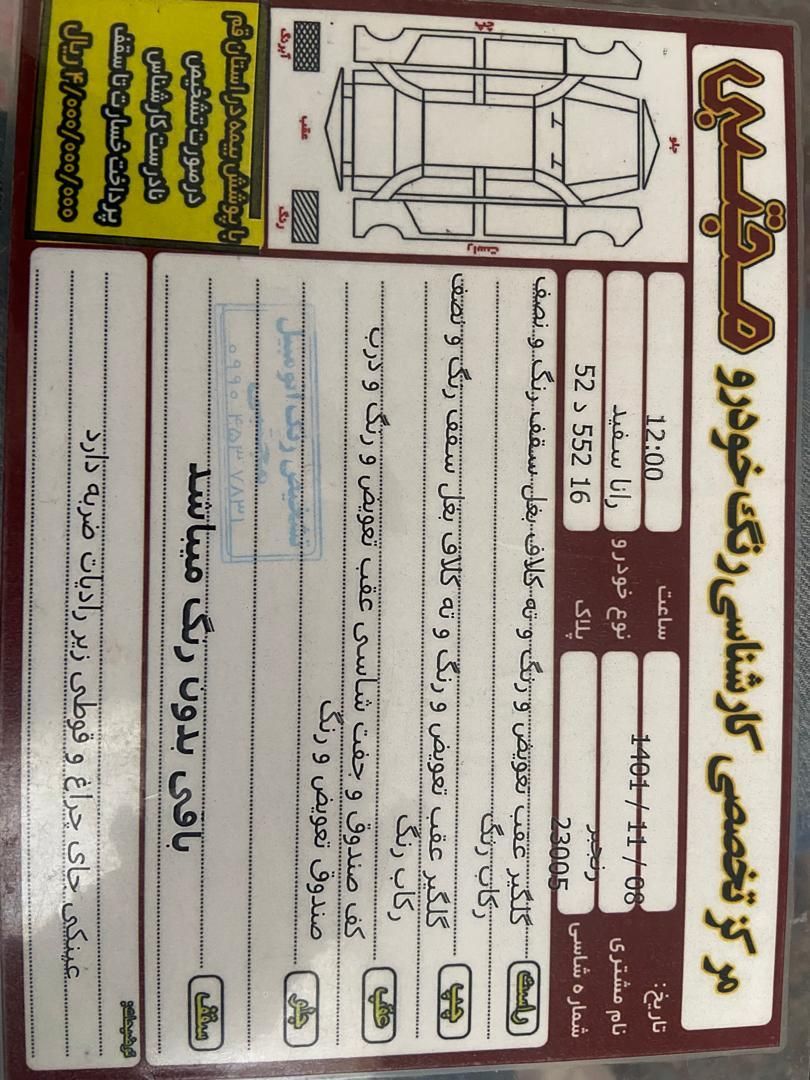 مرکز تخصصی کارشناسی رنگ خودرو مجتبی
تاریخ:
1401 / 11 / 08
ساعت
12:00
نام مشتری
رنجبر
نوع خودرو
رانا سفید
شماره شاسی
23005
پلاک
52 د 552 16
جلو
چپ
راست
عقب
آبرنگ
رنگ
با پوشش بیمه در استان قم
در صورت تشخیص
نادرست کارشناس
پرداخت خسارت تا سقف
۴/۰۰۰/۰۰۰/۰۰۰ ریال
راست
گلگیر عقب تعویض و رنگ و ته کلاف بغل سقف رنگ و نصف
رکاب رنگ
چپ
گلگیر عقب تعویض و رنگ و ته کلاف بغل سقف رنگ و نصف
رکاب رنگ
عقب
کف صندوق و جفت شاسی عقب تعویض و رنگ و درب
صندوق تعویض و رنگ
جلو
سقف
باقی بدون رنگ میباشد
تشخیص رنگ اتومبیل
مجتبی
۰۹۹۰ ۴۵۳ ۷۸۳۱
توضیحات:
عینکی جای چراغ و قوطی زیر رادیات ضربه دارد